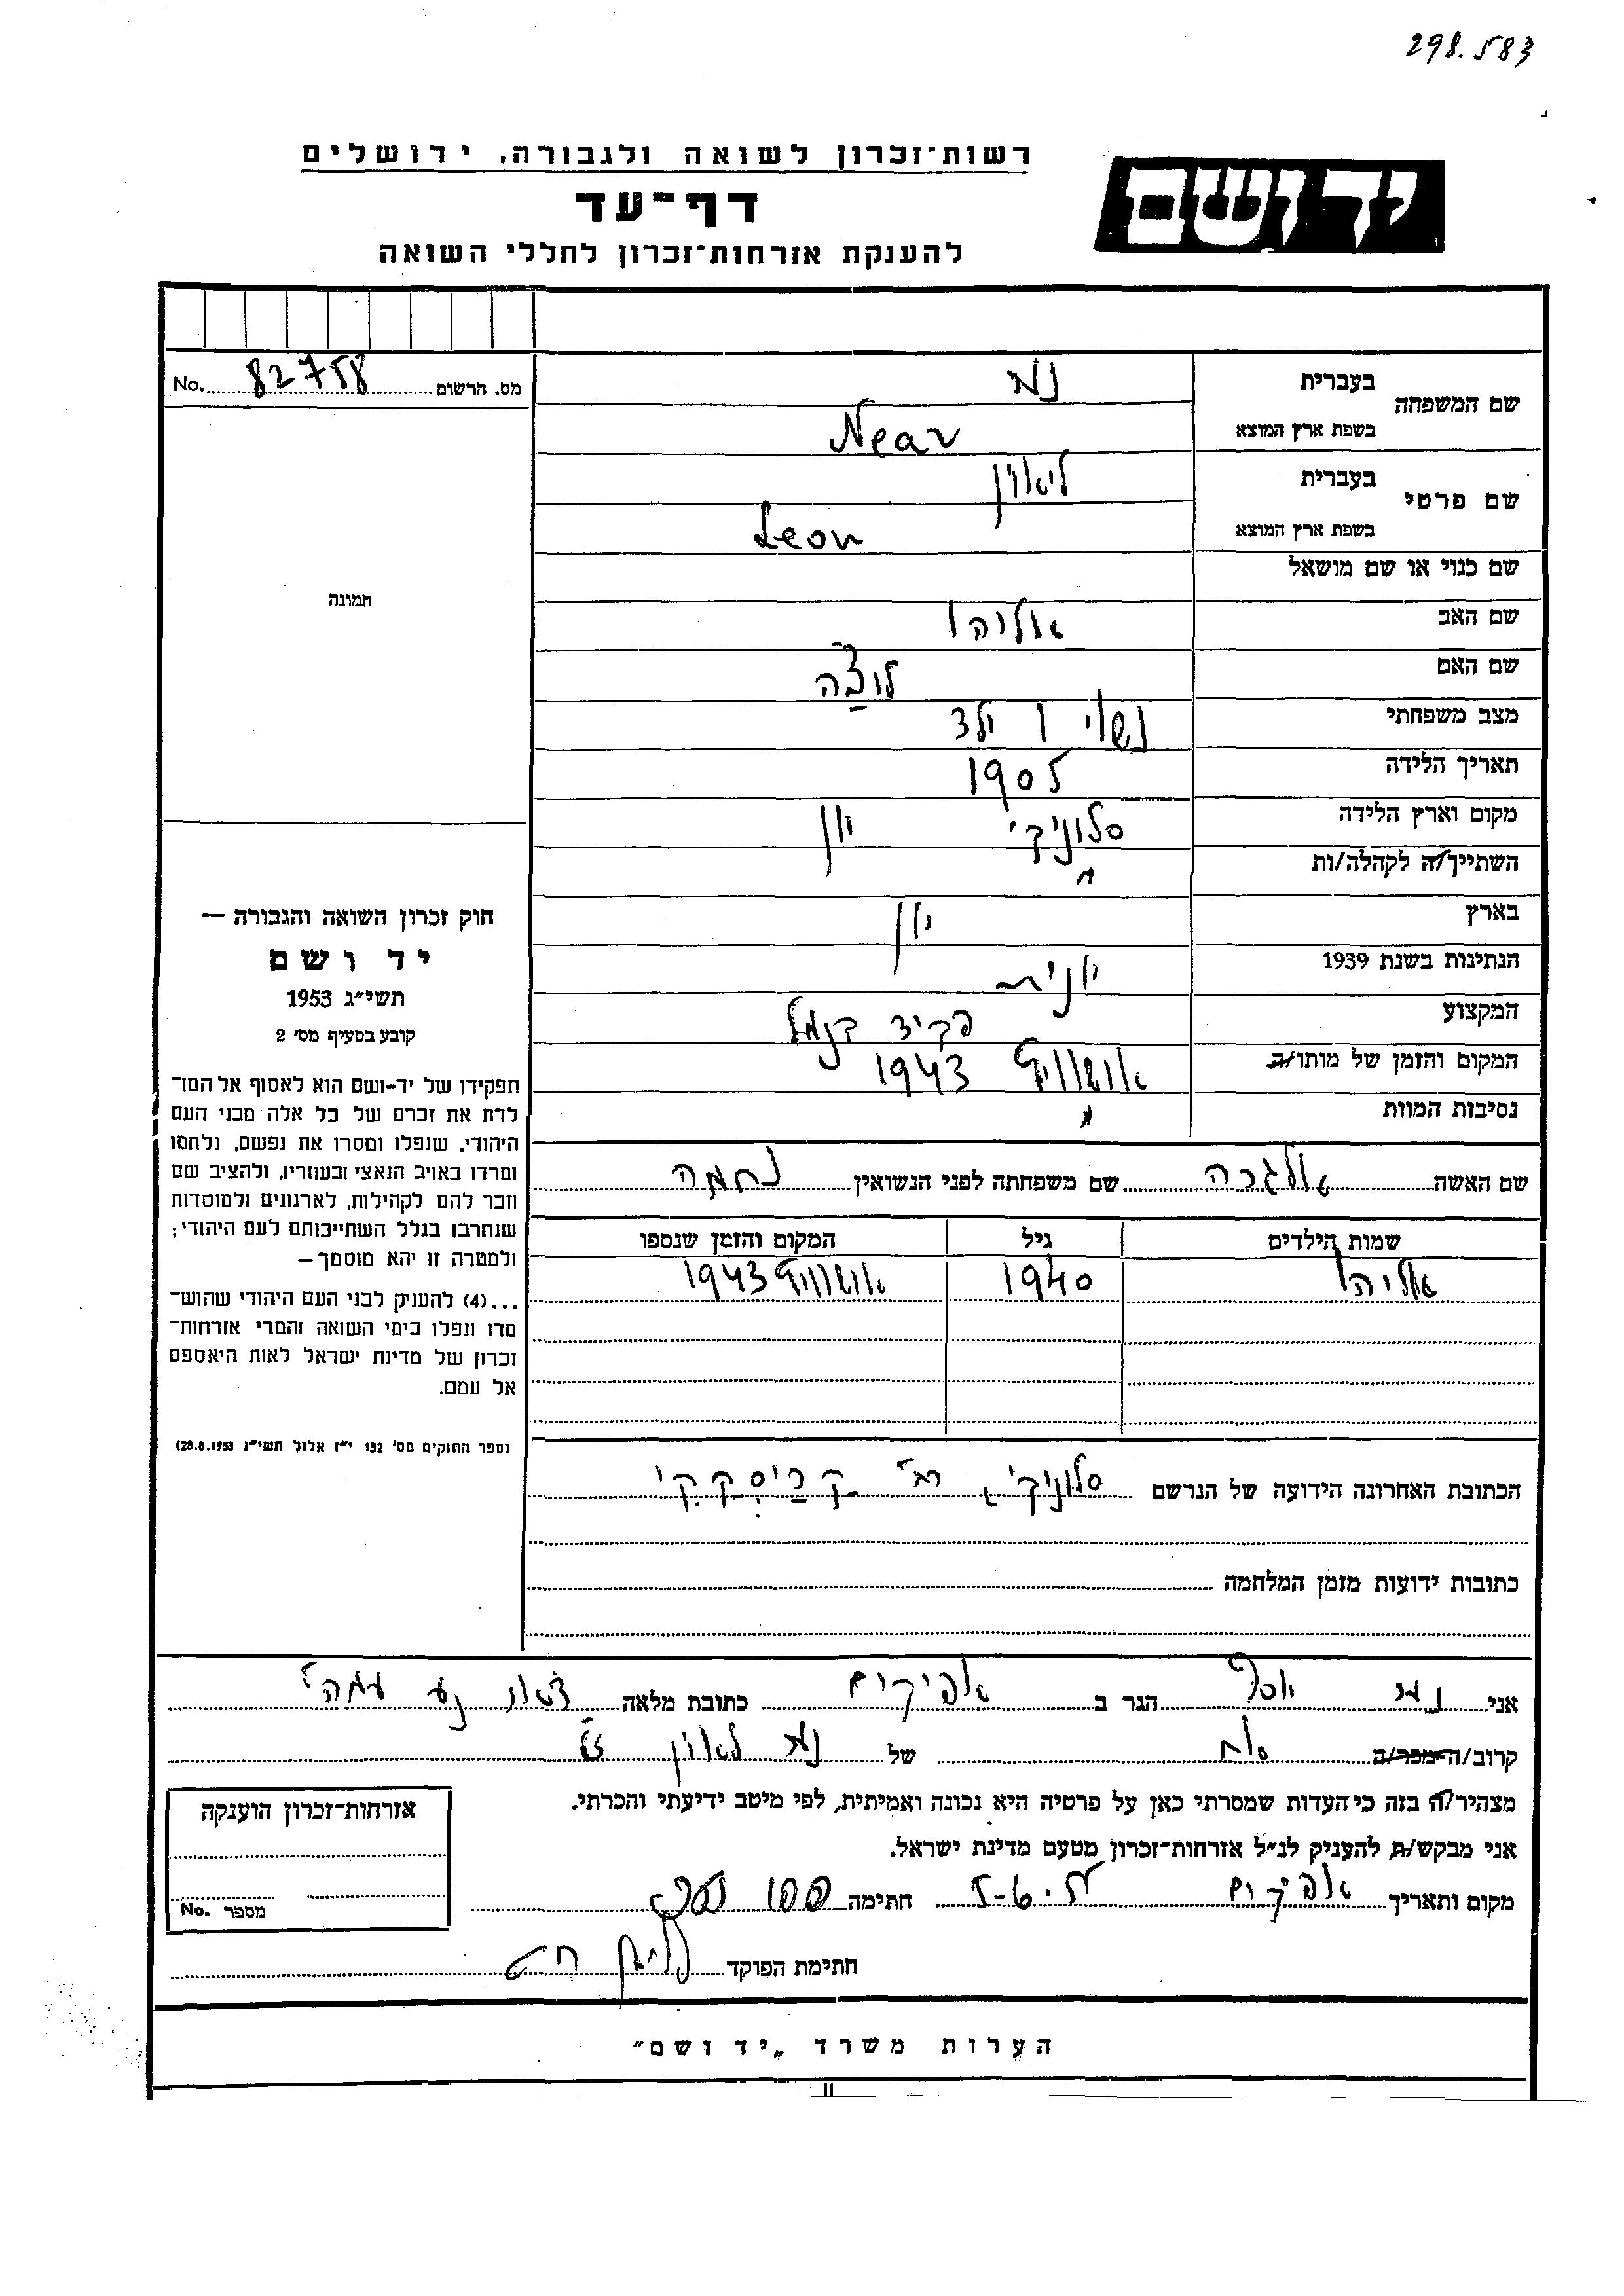 298.583
רשות־זכרון לשואה ולגבורה, ירושלים
יד ושם
דף־עד
להענקת אזרחות־זכרון לחללי השואה
מס. הרשום 82758 No.
שם המשפחה בעברית
בשפת ארץ המוצא Near
שם פרטי בעברית ליאון
בשפת ארץ המוצא Leon
שם כנוי או שם מושאל
שם האב אליהו
שם האם
מצב משפחתי נשוי + ילד
תאריך הלידה 1905
מקום וארץ הלידה סלוניקי יון
השתייך/ה לקהלה/ות "
בארץ יון
הנתינות בשנת 1939 יונית
המקצוע פקיד בנמל
המקום והזמן של מותו/ה אושוויץ 1943
נסיבות המוות "
שם האשה אלגרה שם משפחתה לפני הנשואין נחמה
שמות הילדים גיל המקום והזמן שנספו
אליהו 1940 אושוויץ 1943
הכתובת האחרונה הידועה של הנרשם סלוניקי, רח'
כתובות ידועות מזמן המלחמה
תמונה
חוק זכרון השואה והגבורה —
יד ושם
תשי״ג 1953
קובע בסעיף מס׳ 2
תפקידו של יד-ושם הוא לאסוף אל המו־
לדת את זכרם של כל אלה מבני העם
היהודי, שנפלו ומסרו את נפשם, נלחמו
ומרדו באויב הנאצי ובעוזריו, ולהציב שם
וזכר להם לקהילות, לארגונים ולמוסדות
שנחרבו בגלל השתייכותם לעם היהודי;
ולמטרה זו יהא מוסמך —
...(4) להעניק לבני העם היהודי שהוש־
מדו ונפלו בימי השואה והמרי אזרחות־
זכרון של מדינת ישראל לאות היאספם
אל עמם.
(ספר החוקים מס׳ 132 י״ז אלול תשי״ג 28.8.1953)
אני הגר ב אפיקים כתובת מלאה
קרוב/ה מכר/ה אח של
מצהיר/ה בזה כי העדות שמסרתי כאן על פרטיה היא נכונה ואמיתית, לפי מיטב ידיעתי והכרתי.
אני מבקש/ת להעניק לנ״ל אזרחות־זכרון מטעם מדינת ישראל.
מקום ותאריך אפיקים חתימה
חתימת הפוקד
אזרחות־זכרון הוענקה
מספר No.
הערות משרד „יד ושם״